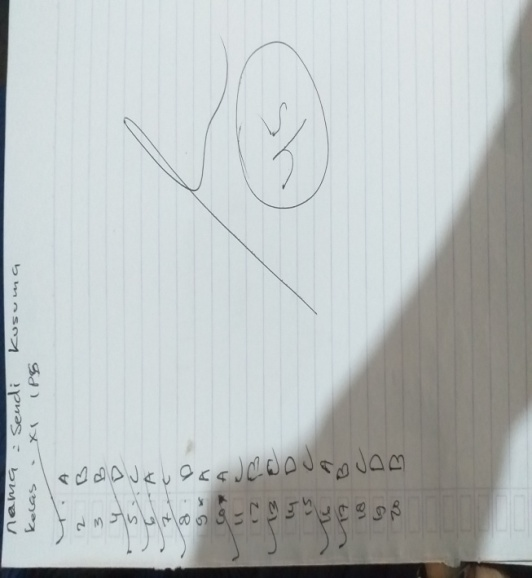 nama : Sendi Kusuma
Kelas : XI IPS
1. A
2 B
3 B
4 D
5. C
6. A
7. C
8. D
9 A
10 A
11 C
12 B
13
14 D
15 C
16 A
17 B
18 C
19 D
20 B